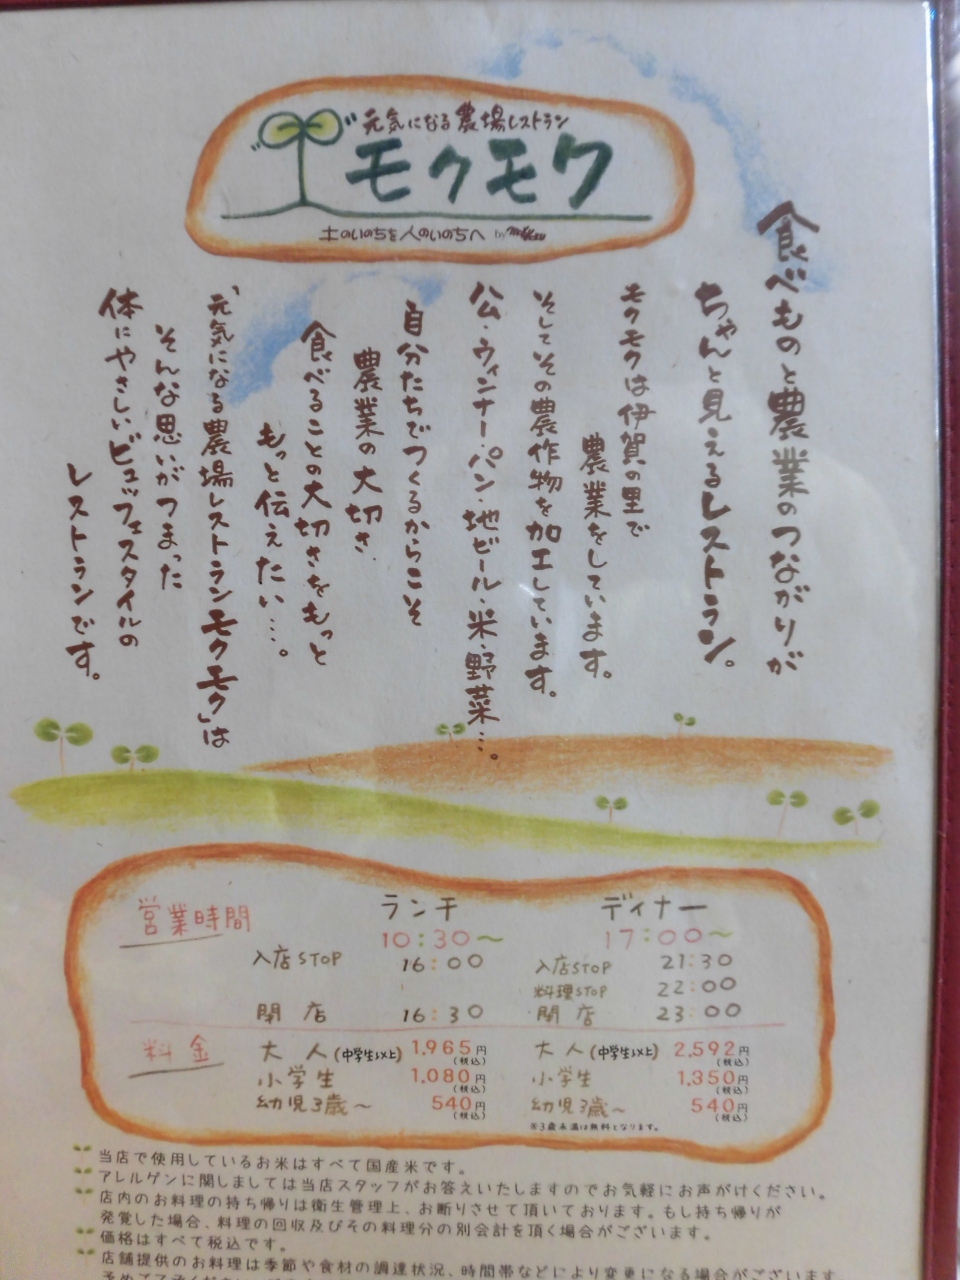 元気になる農場レストラン
モクモク
土のいのちを人のいのちへ by
食べものと農業のつながりが
ちゃんと見えるレストラン。
モクモクは伊賀の里で
農業をしています。
そしてその農作物を加工しています。
公・ウィンナー・パン・地ビール・米・野菜…。
自分たちでつくるからこそ
農業の大切さ
食べることの大切さをもっと
もっと伝えたい…。
「元気になる農場レストランモクモク」は
そんな思いがつまった
体にやさしいビュッフェスタイルの
レストランです。
営業時間 ランチ ディナー
10:30〜 17:00〜
入店STOP 16:00 入店STOP 21:30
料理STOP 22:00
閉店 16:30 閉店 23:00
料金 大人(中学生以上) 1,965円(税込) 大人(中学生以上) 2,592円(税込)
小学生 1,080円(税込) 小学生 1,350円(税込)
幼児3歳〜 540円(税込) 幼児3歳〜 540円(税込)
※3歳未満は無料となります。
当店で使用しているお米はすべて国産米です。
アレルゲンに関しましては当店スタッフがお答えいたしますのでお気軽にお声がけください。
店内のお料理の持ち帰りは衛生管理上、お断りさせて頂いております。もし持ち帰りが
発覚した場合、料理の回収及びその料理分の別会計を頂く場合がございます。
価格はすべて税込です。
店舗提供のお料理は季節や食材の調達状況、時間帯などにより変更になる場合がございます